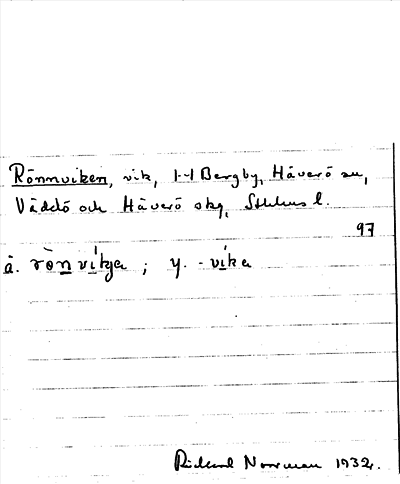 Rönnviken, vik, 1-4 Bergby, Häverö sn,
Väddö och Häverö skg, Sthlms l.
97
ä. rònvíkja ; y. -víka
Rickard Norrman 1932.